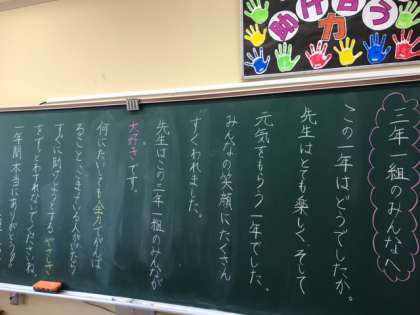 助け合う
力
三年一組のみんなへ
この一年はどうでしたか。
先生はとても楽しく、そして
元気をもらう一年でした。
みんなの笑顔にたくさん
すくわれました。
先生はこの三年一組のみんなが
大好きです。
何にたいしても全力でがんば
ること、こまっている人がいたら
すぐに助けようとするやさしさ
をずっとわすれないでくださいね。
一年間本当にありがとう!!